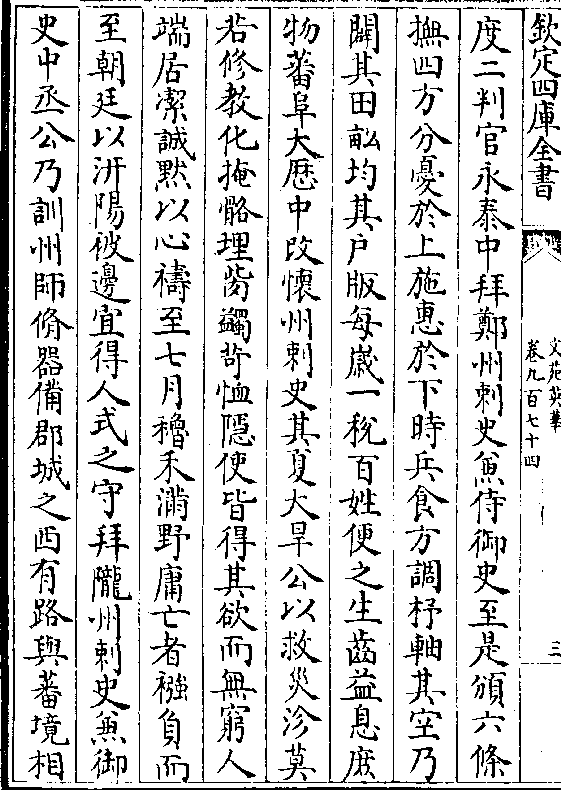 欽定四庫全書
文苑英華
卷九百七十四
三
度二判官永泰中拜鄭州刺史兼侍御史至是頒六條
撫四方分憂於上施惠於下時兵食方調杼軸其空乃
闢其田畝均其户版每歲一稅百姓便之生齒益息庶
物蕃阜大厯中改懷州刺史其夏大旱公以救災沴莫
若修教化掩骼埋胔蠲苛恤隱使皆得其欲而無窮人
端居潔誠黙以心禱至七月穭禾滿野庸亡者襁負而
至朝廷以汧陽彼邊宜得人式之守拜隴州刺史兼御
史中丞公乃訓州師脩器備郡城之西有路與蕃境相